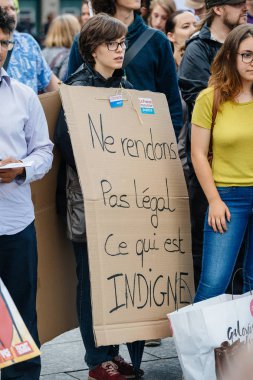 Ne rendons
Pas légal
Ce qui est
INDIGNE